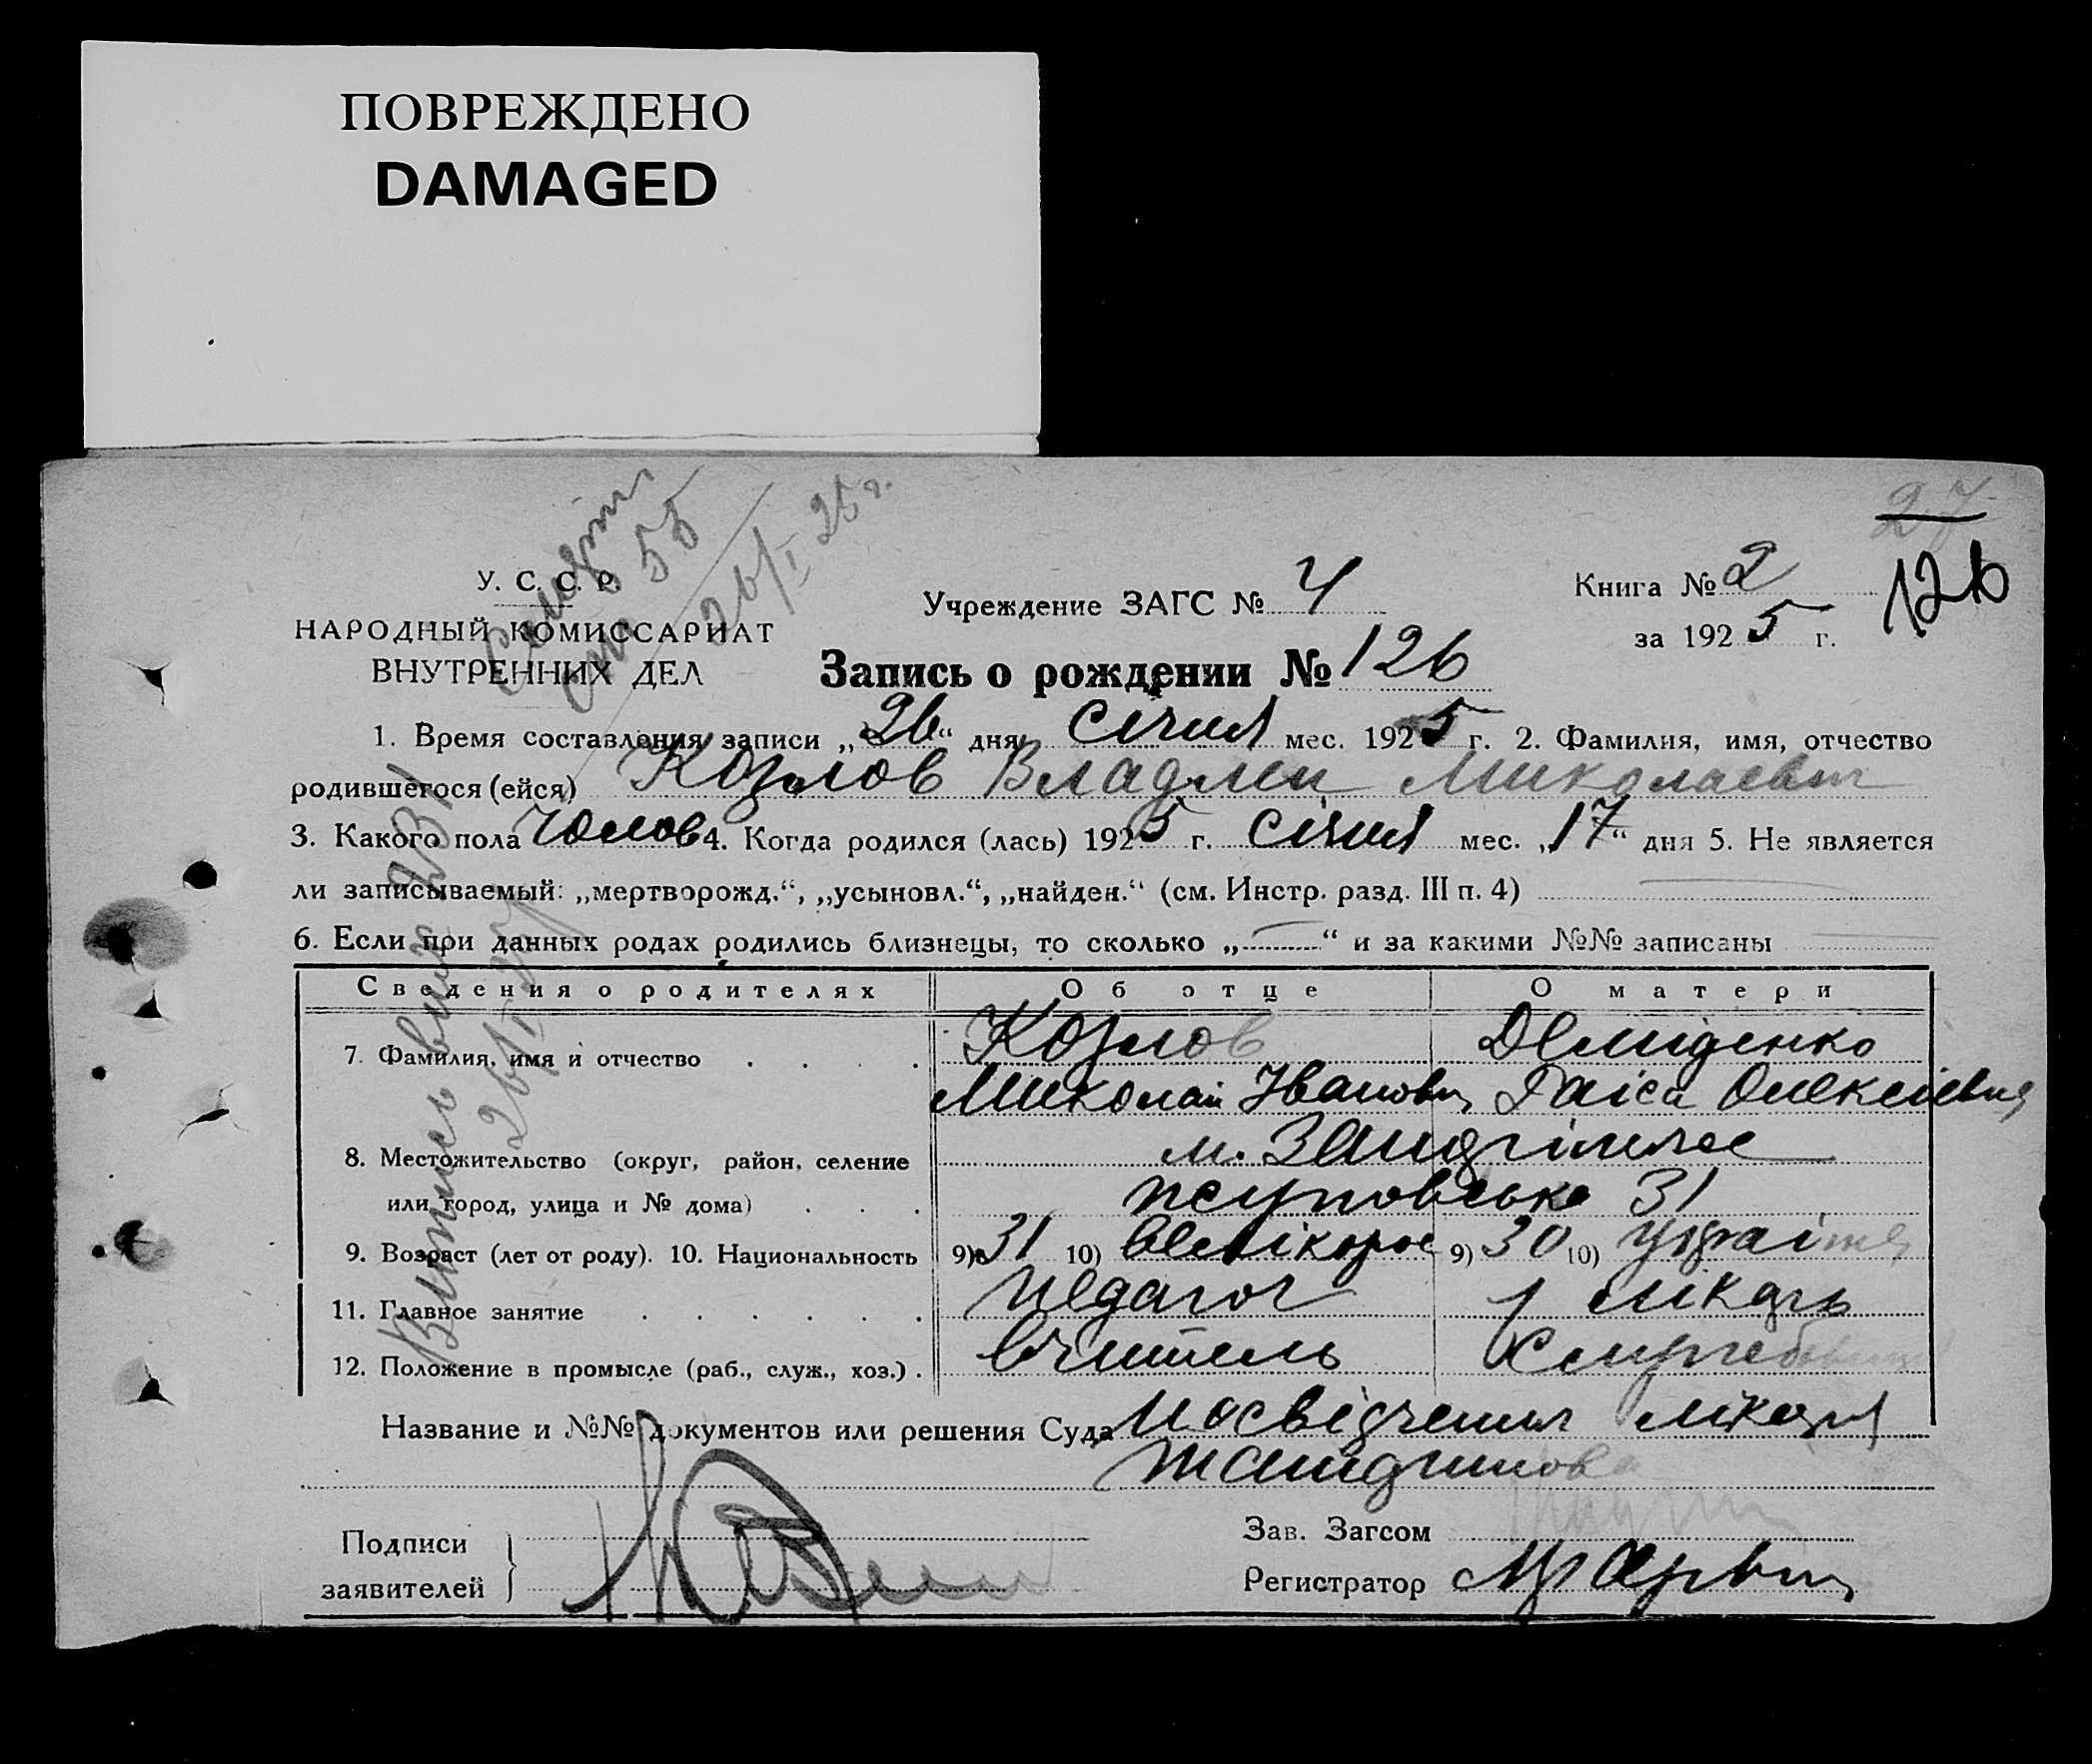 ПОВРЕЖДЕНО
DAMAGED
27
126
26/I 25 г.
У. С. С. Р.
НАРОДНЫЙ КОМИССАРИАТ
ВНУТРЕННИХ ДЕЛ
Учреждение ЗАГС № 4
Книга № 2
за 1925 г.
Запись о рождении № 126
1. Время составления записи „26“ дня Січня мес. 1925 г. 2. Фамилия, имя, отчество
родившегося (ейся) Козлов Владлен Миколаевич
3. Какого пола Чолов 4. Когда родился (лась) 1925 г. Січня мес. „17“ дня 5. Не является
ли записываемый: „мертворожд.“, „усыновл.“, „найден.“ (см. Инстр. разд. III п. 4)
6. Если при данных родах родились близнецы, то сколько „ “ и за какими №№ записаны
Сведения о родителях Об отце О матери
7. Фамилия, имя и отчество Козлов Деміденко
Миколай Іванович Раіса Олексіевна
8. Местожительство (округ, район, селение м.
или город, улица и № дома) 31
9. Возраст (лет от роду). 10. Национальность 9) 31 10) Велікорос 9) 30 10)
11. Главное занятие Педагог лікарь
12. Положение в промысле (раб., служ., хоз.) Вчитель
Название и №№ документов или решения Суда Посвідчення лікаря
Подписи
заявителей
Зав. Загсом
Регистратор